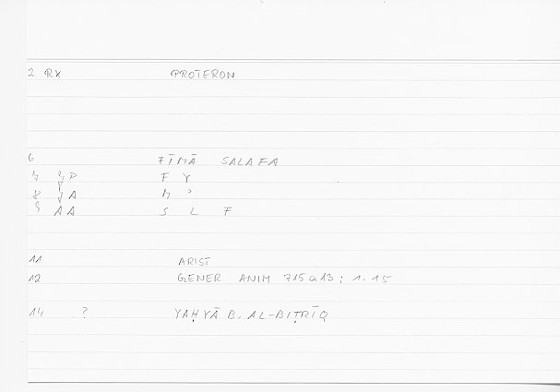 2 RX PROTERON
6 FĪMĀ SALAFA
7 JP F Y
8 JA M ʾ
9 AA S L F
11 ARIST
12 GENER ANIM 715a13 : 1.15
14 ? YAḤYĀ B. AL-BIṬRĪQ